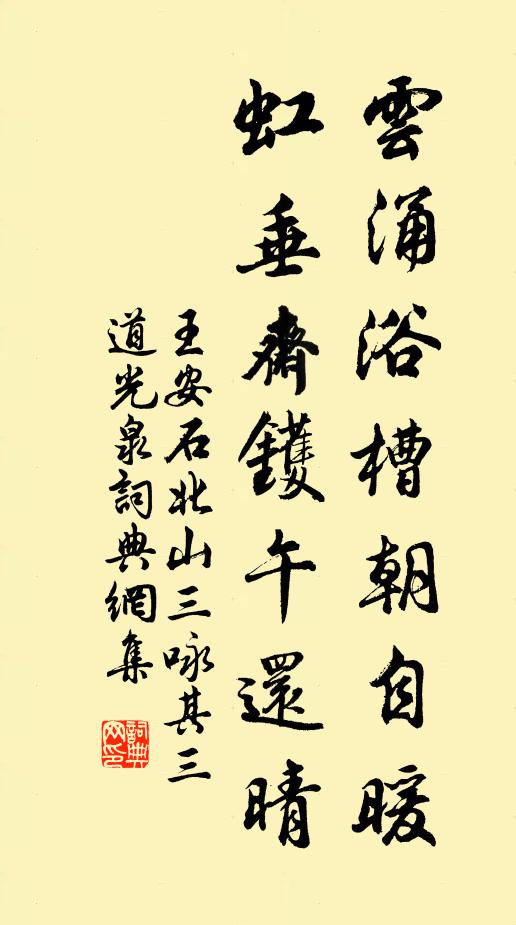 雲涌浴槽朝自暖
虹垂齋鑊午還晴
王安石北山三咏其三
道光泉詞典網集
詞典網印